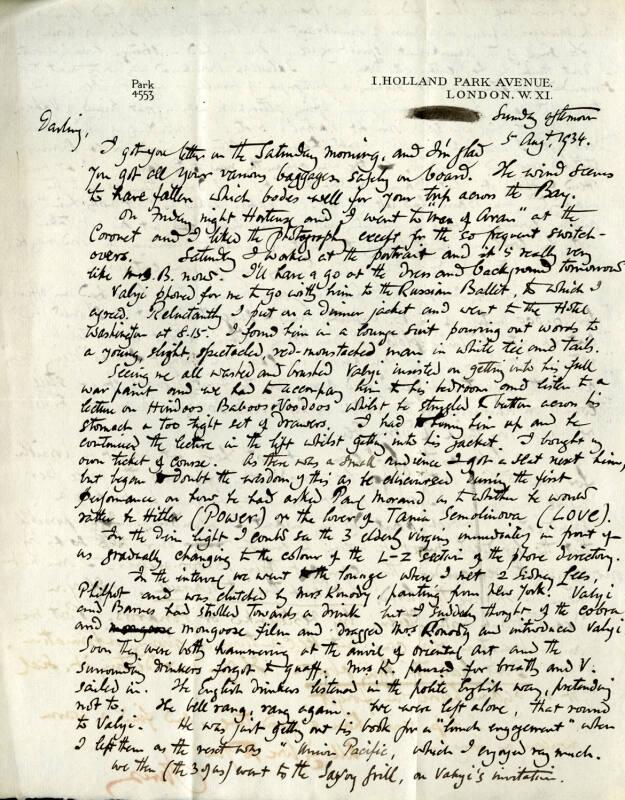 Park
4553
1. HOLLAND PARK AVENUE,
LONDON. W. XI.
Sunday afternoon
5 Augt. 1934.
Darling,
I got you letter on the Saturday morning, and I'm glad
you got all your various baggages safely on board. The wind seems
to have fallen which bodes well for your trip across the Bay.
On Friday night Hortense and I went to "Man of Arran" at the
Coronet and I liked the photography except for the so frequent switch-
overs. Saturday I worked at the portrait and it's really very
like Mrs B. now. I'll have a go at the Dress and background tomorrow
Valyi phoned for me to go with him to the Russian Ballet, to which I
agreed. Reluctantly I put on a dinner jacket and went to the Hotel
Washington at 8.15. I found him in a lounge suit pouring out words to
a young, slight, spectacled, red-moustached man in white tie and tails.
Seeing me all washed and brushed Valyi insisted on getting into his full
war paint and we had to accompany him to his bedroom and listen to a
lecture on Hindoos, Baboos & Voodoos whilst he struggled to button across his
stomach a too tight set of drawers. I had to him up and he
continued the lecture in the lift whilst getting into his jacket. I bought my
own ticket of course. As there was a small audience I got a seat next him,
but began to doubt the wisdom of this as he discoursed during the first
performance on how he had asked Paul Morand as to whether he would
rather be Hitler (POWER) or the lover of Tania Semolinova (LOVE).
In the dim light I could see the 3 elderly virgins immediately in front of
us gradually changing to the colour of the L-Z section of the phone directory.
In the interval we went to the lounge where I met 2 Sidney Lees,
Philpot and was clutched by Mrs Konody, panting from New York. Valyi
and Barnes had strolled towards a drink but I suddenly thought of the cobra
and mongoose film and dragged Mrs Konody and introduced Valyi
Soon they were both hammering at the anvil of oriental art and the
surrounding drinkers forgot to quaff. Mrs K. paused for breath and V.
sailed in. The English drinkers listened in the polite English way, pretending
not to. The bell rang, rang again. We were left alone, that round
to Valyi. He was just getting out his book for a "lunch engagement" when
I left them as the next was "Union Pacific, which I enjoyed very much.
We then (the 3 of us) went to the Savoy Grill, on Valyi's invitation.